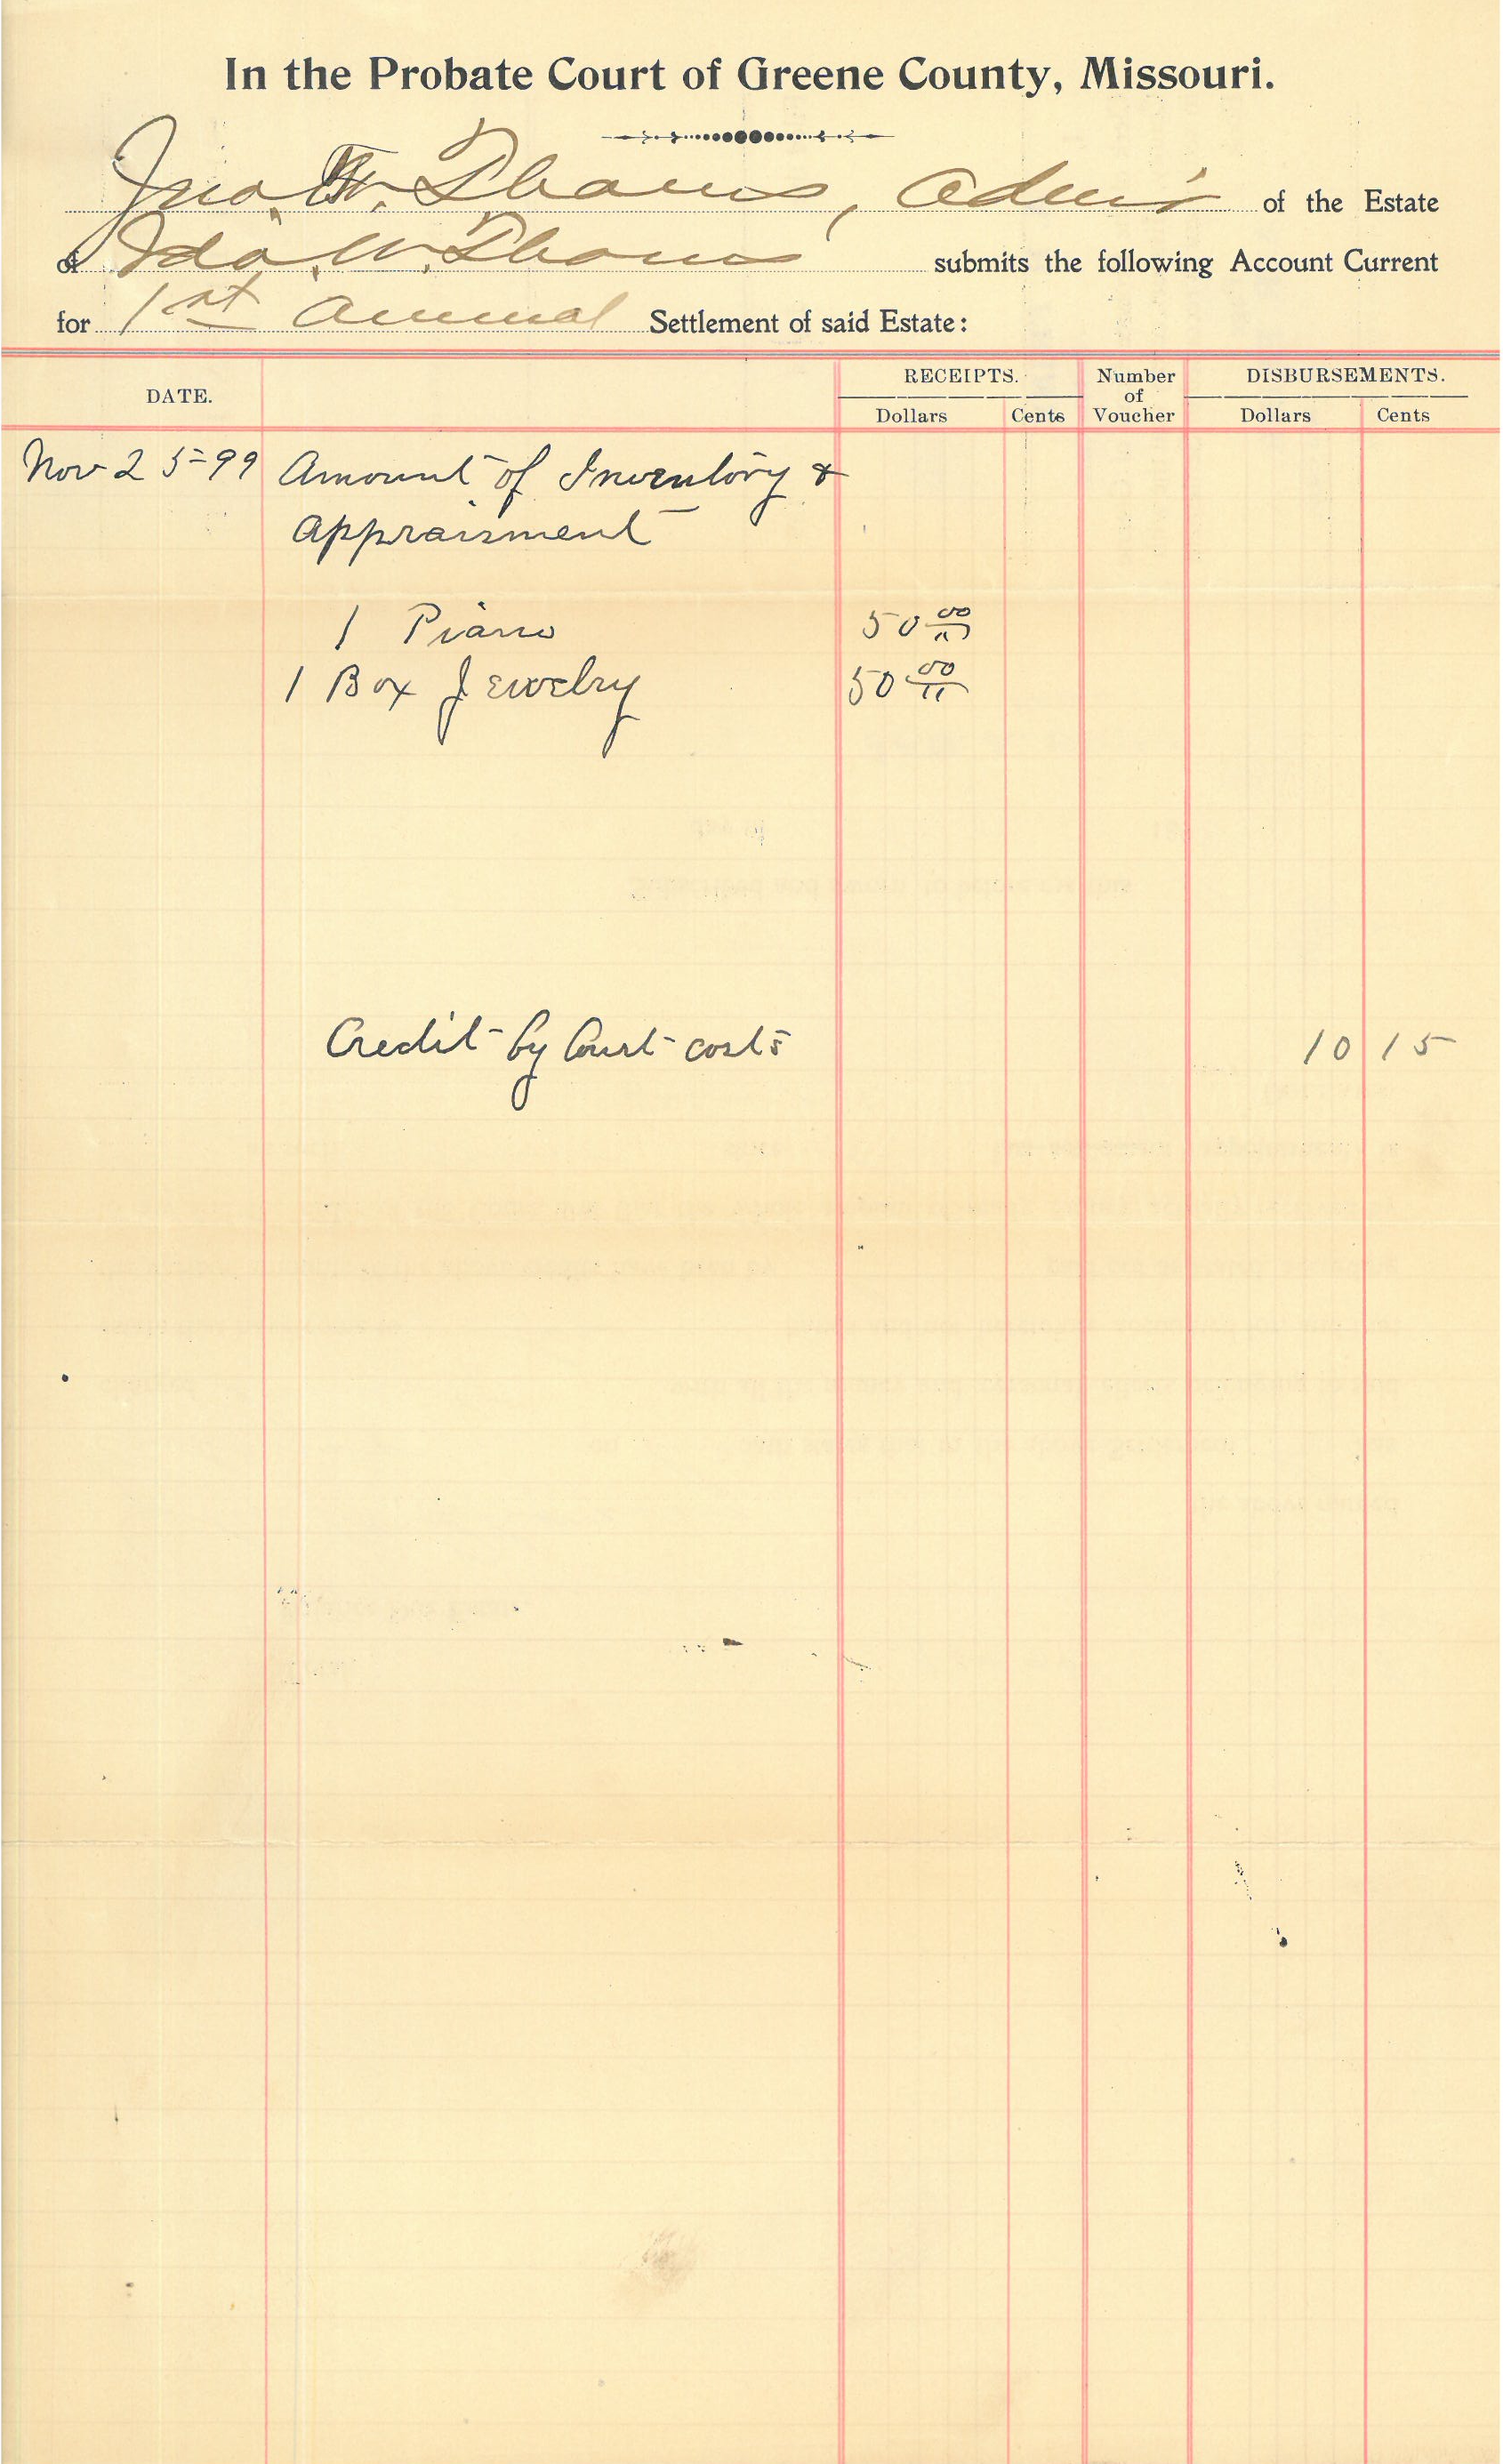 In the Probate Court of Greene County, Missouri.
Jno. W. Thoms, Adm'r of the Estate
of Ida W. Thoms submits the following Account Current
for 1st Annual Settlement of said Estate:
DATE. RECEIPTS. Number of Voucher DISBURSEMENTS.
Dollars Cents Dollars Cents
Nov 25-99 Amount of Inventory &
Appraisment
1 Piano 50 00
1 Box Jewelry 50 00
Credit by Court costs 10 15